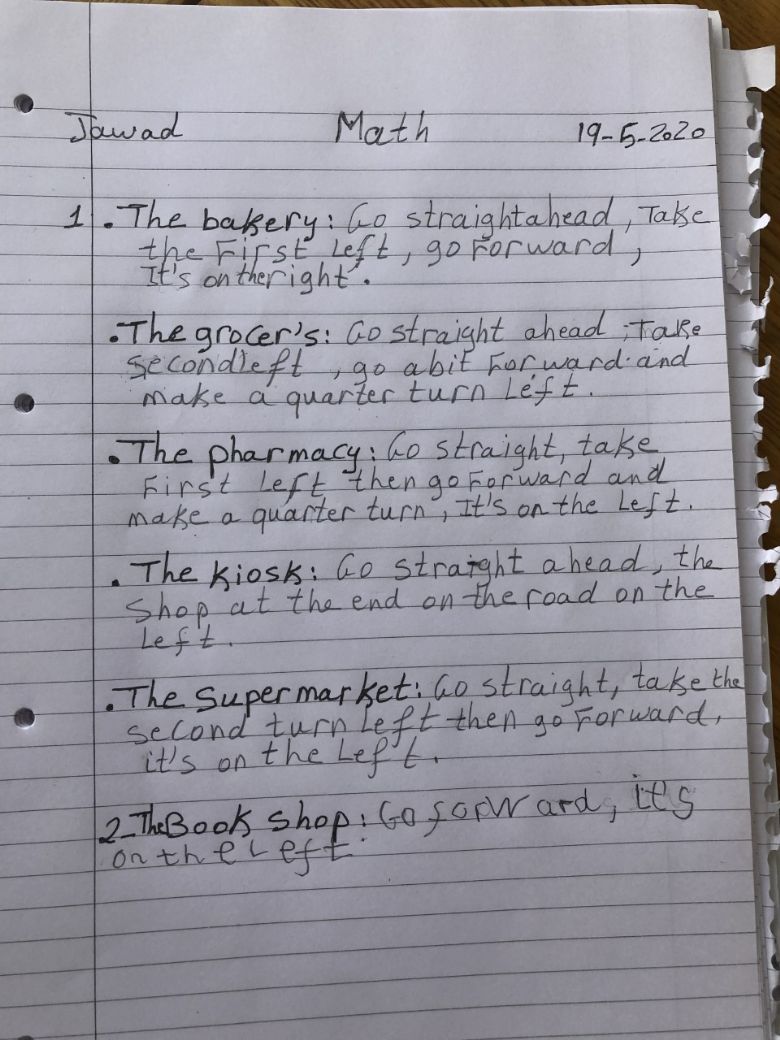 Jawad Math 19-5-2020
1. The bakery: Go straight ahead, Take
the First Left, go Forward,
It's on the right.
. The grocer's: Go straight ahead, Take
second left, go a bit Forward and
make a quarter turn Left.
. The pharmacy: Go straight, take
First Left then go Forward and
make a quarter turn, It's on the Left.
. The kiosk: Go straight ahead, the
shop at the end on the road on the
Left.
. The supermarket: Go straight, take the
second turn left then go Forward,
it's on the Left.
2-The Book shop: Go forward, it's
on the Left.